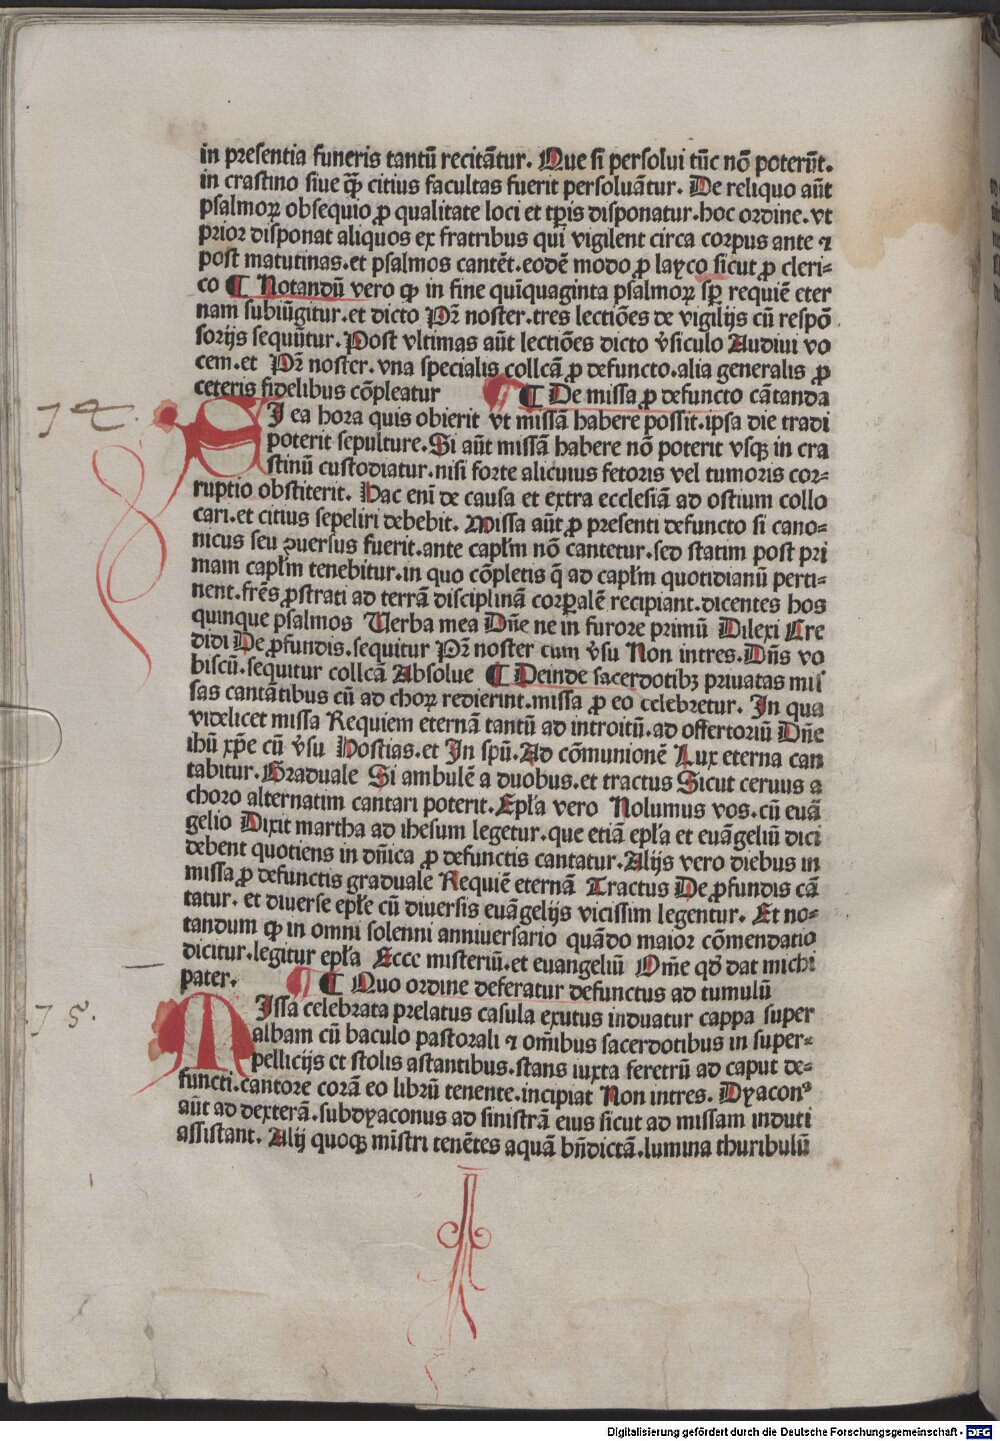 in presentia funeris tantū recitātur. Que si persolui tūc nō poterūt.
in crastino siue qꝫ̄ citius facultas fuerit persoluātur. De reliquo aūt
psalmoꝝ obsequio ꝓ qualitate loci et tꝑis disponatur. hoc ordine. vt
prior disponat aliquos ex fratribus qui vigilent circa corpus ante ⁊
post matutinas. et psalmos cantēt. eodē modo ꝓ layco sicut ꝓ cleri⸗
co ¶ Notandū vero ꝙ in fine quīquaginta psalmoꝝ sꝑ requiē eter
nam subiūgitur. et dicto Pr̄ noster. tres lectiōes de vigilijs cū respō
sorijs sequūtur. Post vltimas aūt lectiōes dicto v̄siculo Audiui vo
cem. et Pr̄ noster. vna specialis collcā ꝓ defuncto. alia generalis ꝓ
ceteris fidelibus cōpleatur ¶ De missa ꝓ defuncto cātanda
74.
SI ea hora quis obierit vt missā habere possit. ipsa die tradi
poterit sepulture. Si aūt missā habere nō poterit vsqꝫ in cra
stinū custodiatur. nisi forte alicuius fetoris vel tumoris cor⸗
ruptio obstiterit. Hac enī de causa et extra ecclesiā ad ostium collo
cari. et citius sepeliri debebit. Missa aūt ꝓ presenti defuncto si cano⸗
nicus seu ꝯuersus fuerit. ante capłm nō cantetur. sed statim post pri
mam capłm tenebitur. in quo cōpletis q̄ ad capłm quotidianū perti⸗
nent. frēs ꝓstrati ad terrā disciplinā corꝑalē recipiant. dicentes hos
quinque psalmos Uerba mea Dn̄e ne in furore primū Dilexi Cre
didi De ꝓfundis. sequitur Pr̄ noster cum v̄su Non intres. Dn̄s vo
biscū. sequitur collcā Absolue ¶ Deinde sacerdotibꝫ priuatas mis
sas cantātibus cū ad choꝝ redierint. missa ꝓ eo celebretur. In qua
videlicet missa Requiem eternā tantū ad introitū. ad offertoriū Dn̄e
ihū xp̄e cū v̄su Hostias. et In spū. Ad cōmunionē Lux eterna can
tabitur. Graduale Si ambulē a duobus. et tractus Sicut ceruus a
choro alternatim cantari poterit. Epła vero Nolumus vos. cū euā
gelio Dixit martha ad ihesum legetur. que etiā epła et euāgeliū dici
debent quotiens in dn̄ica ꝓ defunctis cantatur. Alijs vero diebus in
missa ꝓ defunctis graduale Requiē eternā Tractus De ꝓfundis cā
tatur. et diuerse epłe cū diuersis euāgelijs vicissim legentur. Et no⸗
tandum ꝙ in omni solenni anniuersario quādo maior cōmendatio
dicitur. legitur epła Ecce misteriū. et euangeliū Om̄e qd̄ dat michi
pater. ¶ Quo ordine deferatur defunctus ad tumulū
75.
MIssa celebrata prelatus casula exutus induatur cappa super
albam cū baculo pastorali ⁊ om̄ibus sacerdotibus in super⸗
pellicijs et stolis astantibus. stans iuxta feretrū ad caput de⸗
functi. cantore corā eo librū tenente. incipiat Non intres. Dyaconꝰ
aūt ad dexterā. subdyaconus ad sinistrā eius sicut ad missam induti
assistant. Alij quoqꝫ mīstri tenētes aquā bn̄dictā. lumina thuribulū
Digitalisierung gefördert durch die Deutsche Forschungsgemeinschaft - DFG